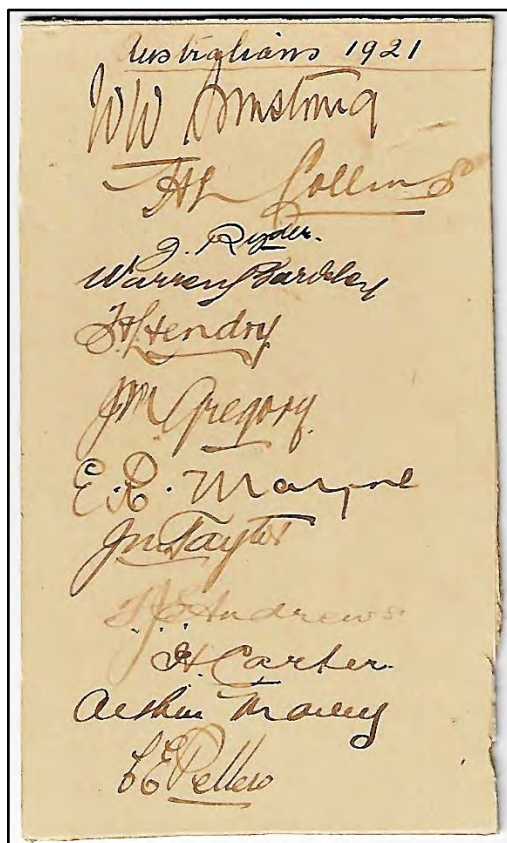 Australians 1921
WW Armstrong
H L Collins
J. Ryder.
Warren Bardsley
H L Hendry
J M Gregory.
E. R. Mayne
J M Taylor
T. J. E Andrews.
H. Carter.
Arthur Mailey
C E Pellew